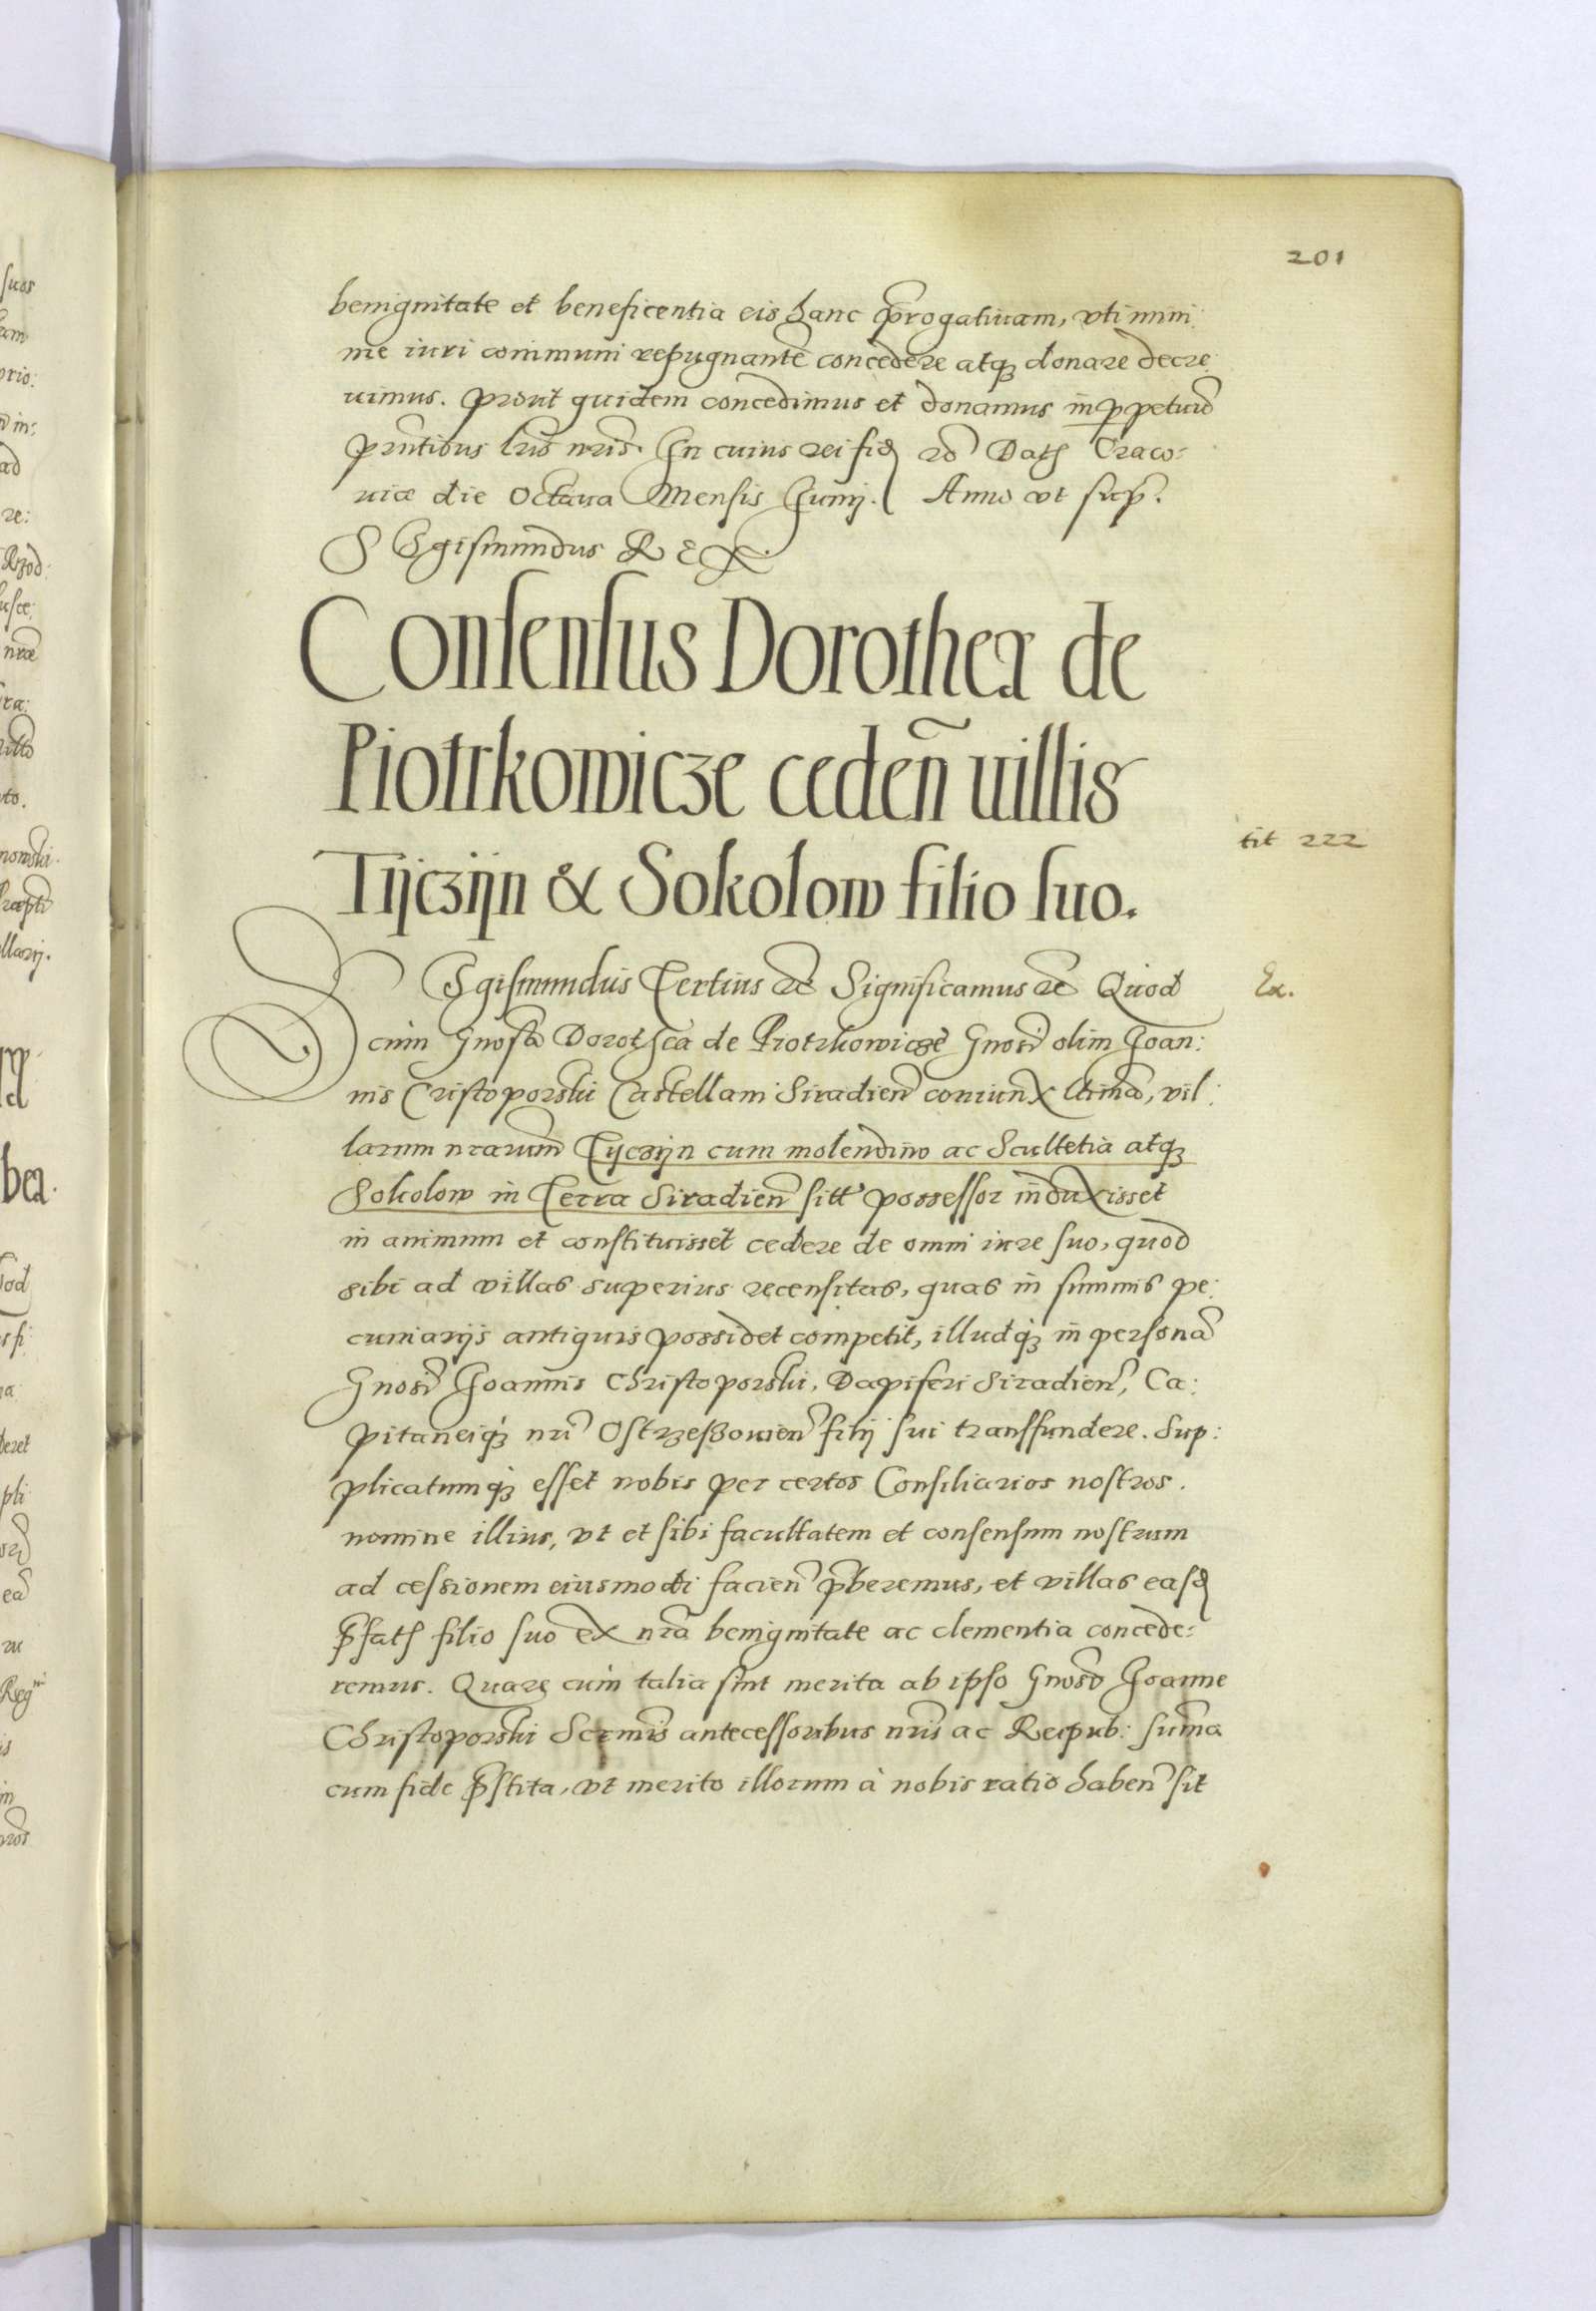 201
benignitate et beneficentia eis hanc p̄rogatiuam, vti mini:
me iuri communi repugnantē concedere atq꜄ donare decre:
uimus. prout quidem concedimus et donamus in ꝑpetuũ
pñtibus lr̃is nr̃is. In cuius rei fid rc̃ Dath Craco:
uiæ die Octaua Mensis Junij. Anno vt sup̃.
SIgismundus REX.
Consensus Dorotheæ de
Piotrkowicze ceden̄ uillis
Tijczijn & Sokolow filio suo.
tit 222
SIgismundus Tertius rc̃ Significamus rc̃ Quod
Ex.
cum Gnosa Dorothea de Piotrkowicze Gnosi olim Joan:
nis Cristoporski Castellani Siradien̄ coniunx ltima, vil:
larum nrarum Tijczijn cum molendino ac Scultetia atq꜄
Sokolow in Terra Siradien̄ sitt possessor induxisset
in animum et constituisset cedere de omni iure suo, quod
sibi ad villas superius recensitas, quas in summis pe:
cuniarijs antiquis possidet competit, illudq꜄ in personā
Gnosi Joannis Christoporski, Dapiferi Siradien̄, Ca:
pitaneiq꜄ nri Ostrzeßouien̄ filij sui transfundere. Sup:
plicatumq꜄ esset nobis per certos Consiliarios nostros.
nomine illius, vt et sibi facultatem et consensum nostrum
ad cessionem eiusmodi facien̄ p̄beremus, et villas easd
p̄fath filio suo ex nrã benignitate ac clementia concede:
remus. Quare cum talia sint merita ab ipso Gnoso Joanne
Christoporski Sermis antecessoribus nris ac Reipub: sum̄a
cum fide p̄stita, vt merito illorum à nobis ratio haben̄ sit